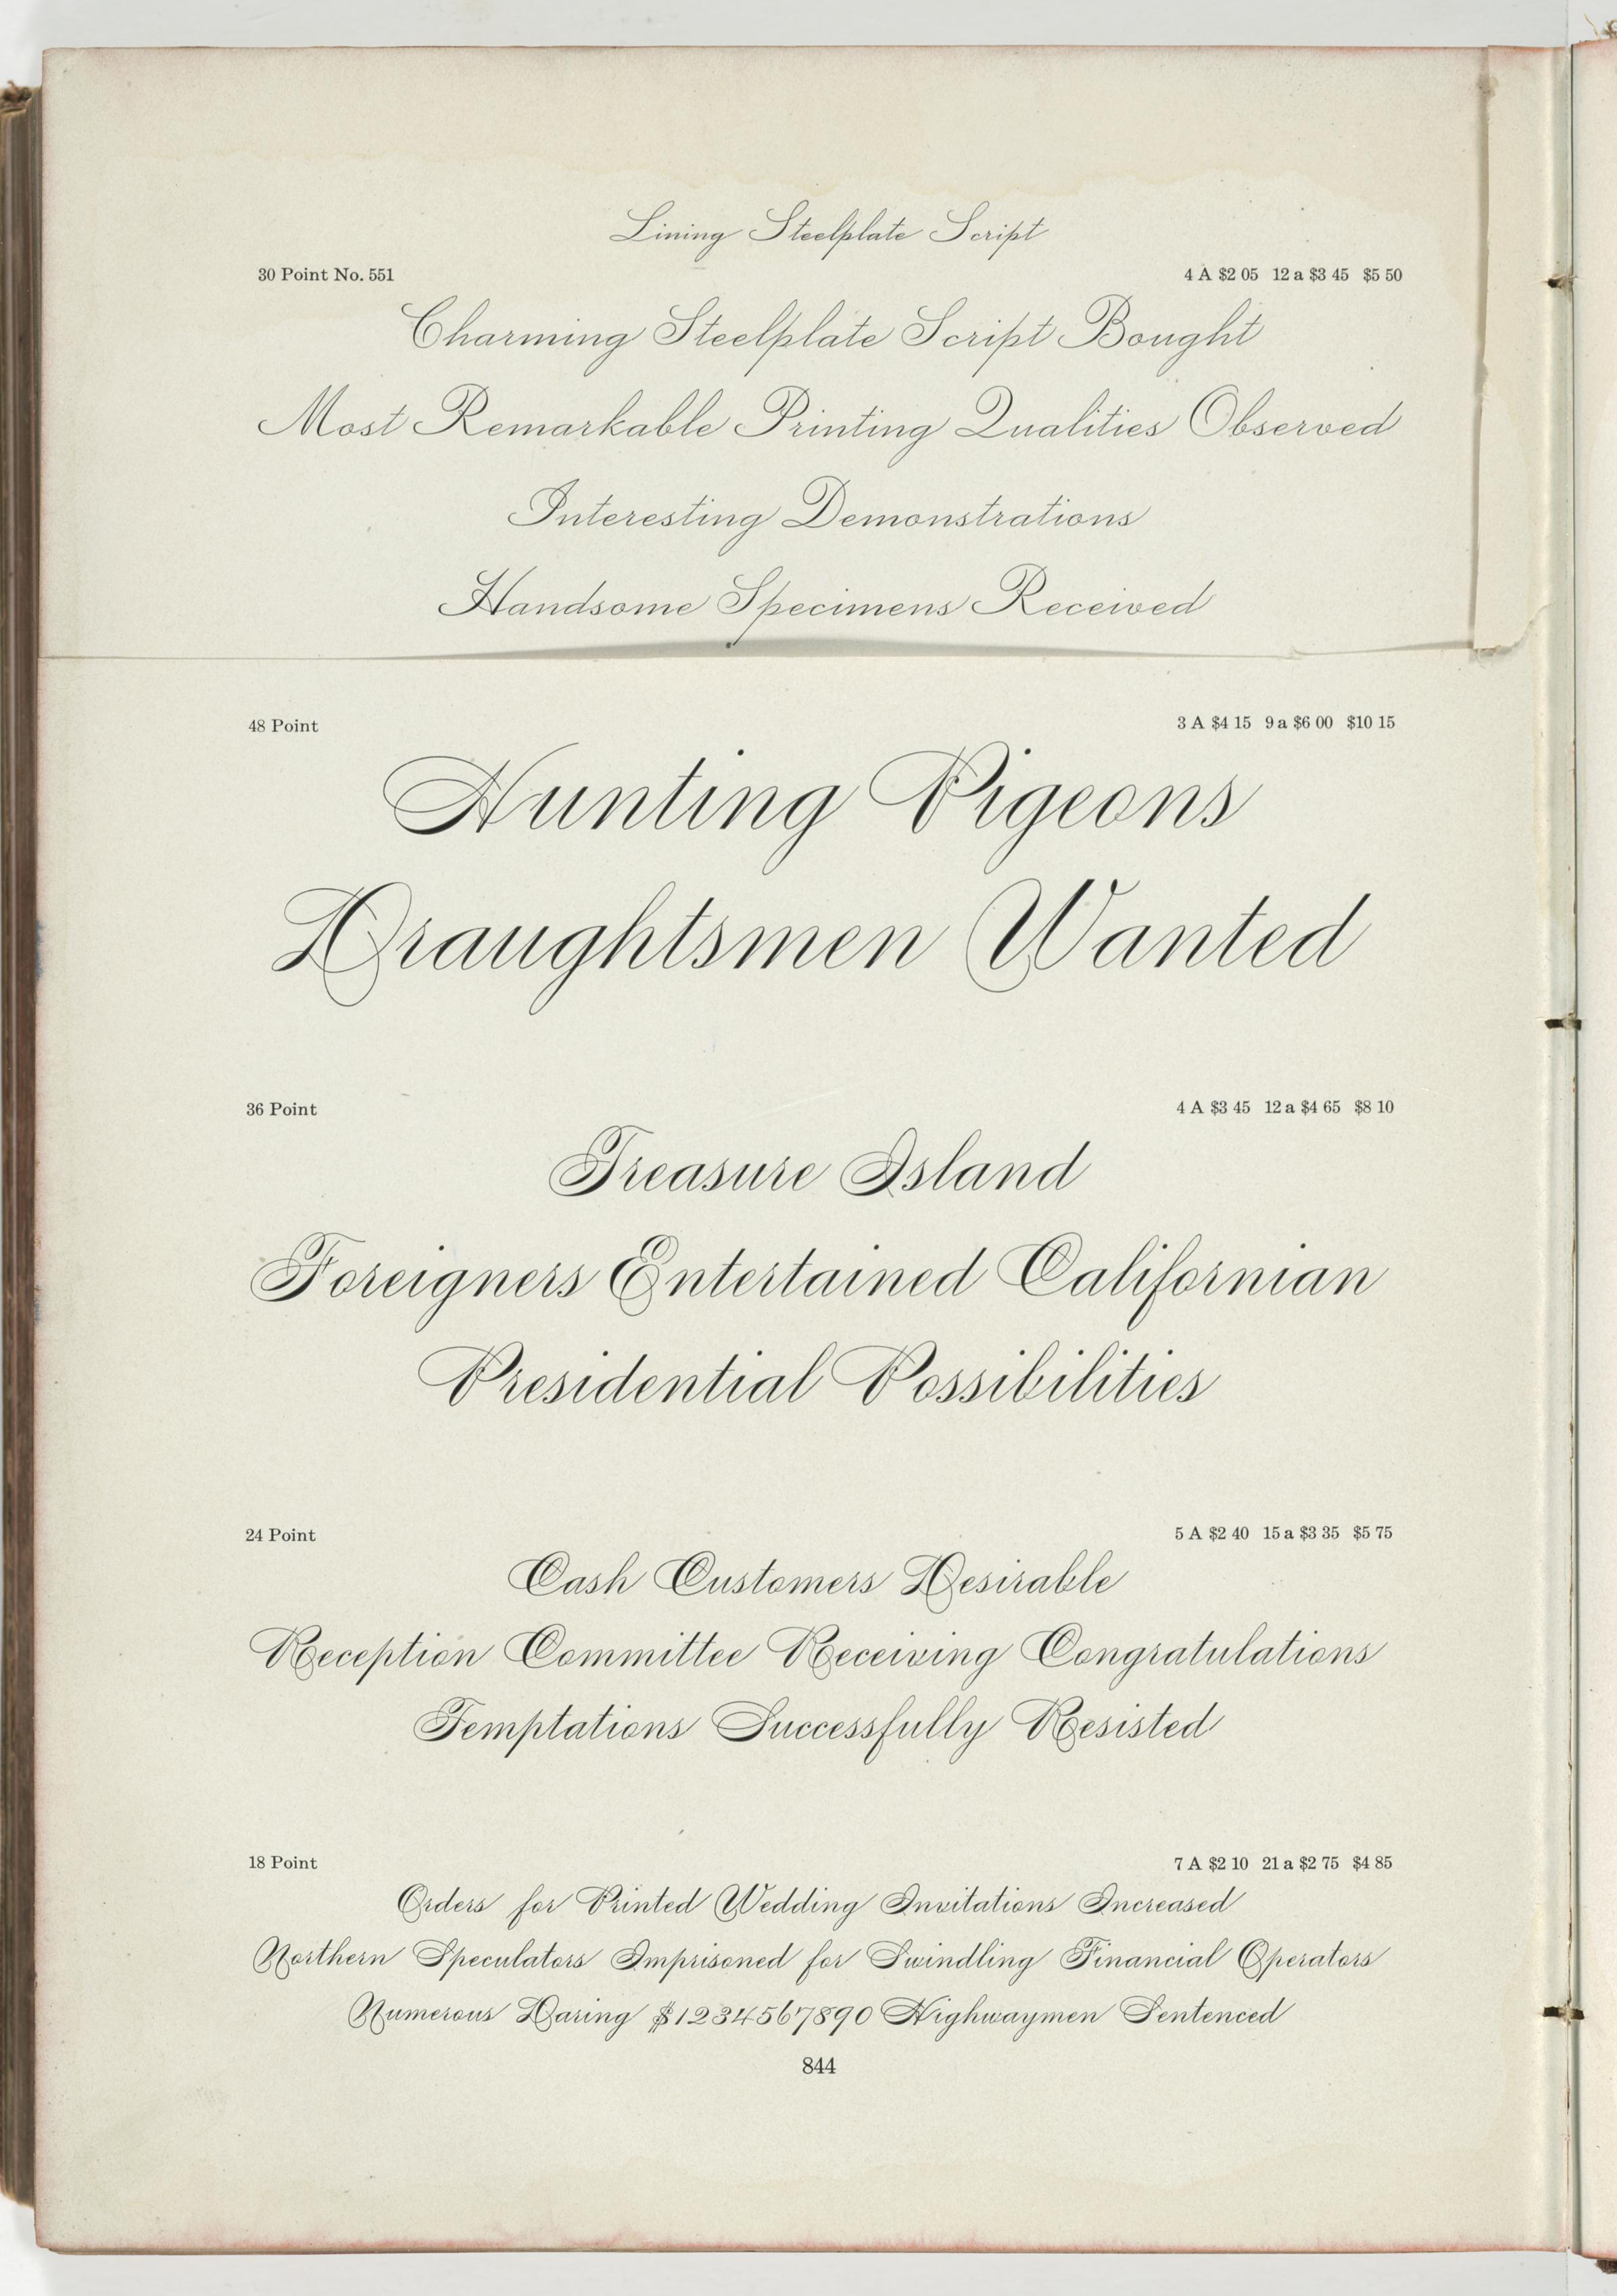 Lining Steelplate Script
30 Point No. 551 4 A $2 05 12 a $3 45 $5 50
Charming Steelplate Script Bought
Most Remarkable Printing Qualities Observed
Interesting Demonstrations
Handsome Specimens Received
48 Point 3 A $4 15 9 a $6 00 $10 15
Hunting Pigeons
Draughtsmen Wanted
36 Point 4 A $3 45 12 a $4 65 $8 10
Treasure Island
Foreigners Entertained Californian
Presidential Possibilities
24 Point 5 A $2 40 15 a $3 35 $5 75
Cash Customers Desirable
Reception Committee Receiving Congratulations
Temptations Successfully Resisted
18 Point 7 A $2 10 21 a $2 75 $4 85
Orders for Printed Wedding Invitations Increased
Northern Speculators Imprisoned for Swindling Financial Operators
Numerous Daring $1234567890 Highwaymen Sentenced
844